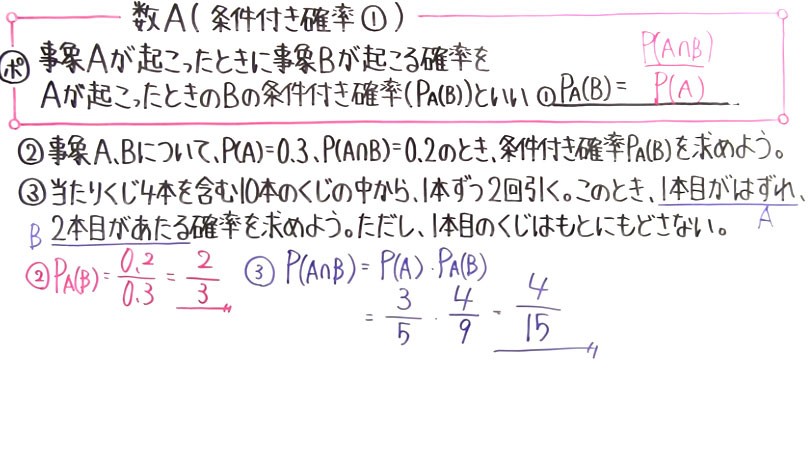 数A(条件付き確率①)
ポ 事象Aが起こったときに事象Bが起こる確率を
Aが起こったときのBの条件付き確率(PA(B))といい ①PA(B)= P(A∩B)/P(A)
②事象A、Bについて、P(A)=0.3、P(A∩B)=0.2のとき、条件付き確率PA(B)を求めよう。
③当たりくじ4本を含む10本のくじの中から、1本ずつ2回引く。このとき、1本目がはずれ、
A
B 2本目があたる確率を求めよう。ただし、1本目のくじはもとにもどさない。
②PA(B)= 0.2/0.3 = 2/3
③ P(A∩B)= P(A)・PA(B)
= 3/5 ・ 4/9 = 4/15